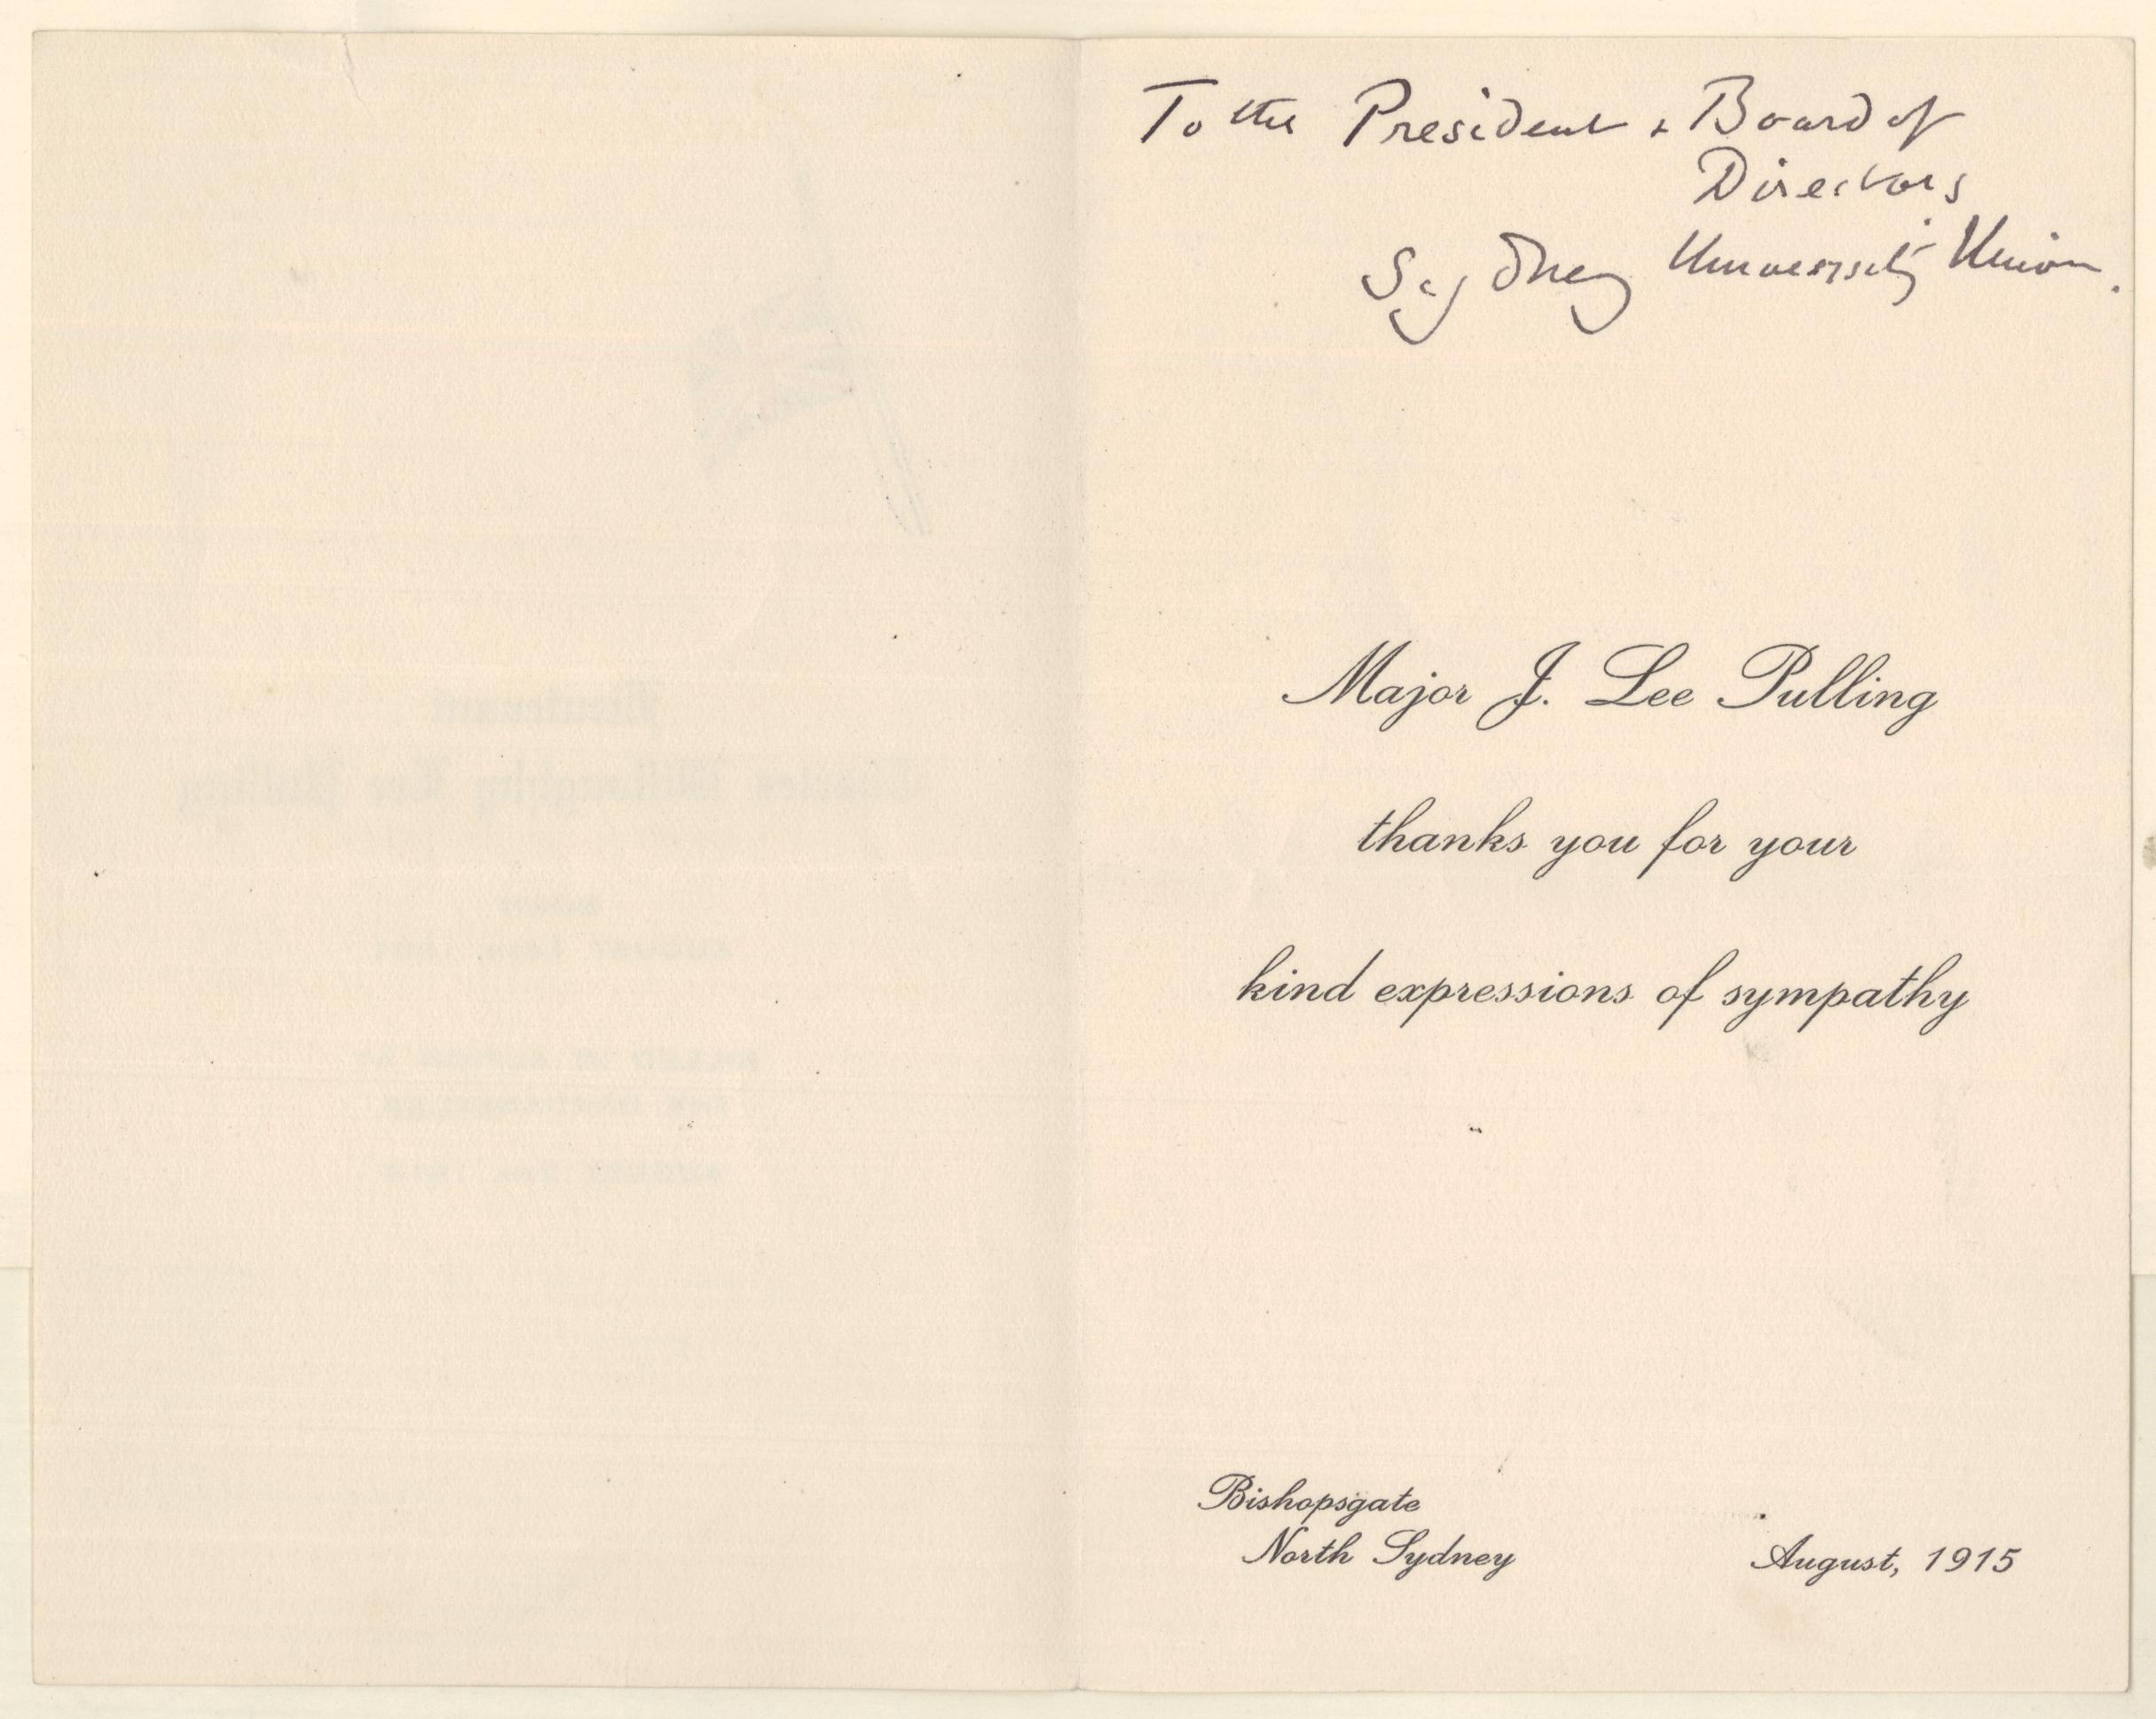 To the President & Board of
Directors
Sydney University Union.
Major J. Lee Pulling
thanks you for your
kind expressions of sympathy
Bishopsgate
North Sydney
August, 1915